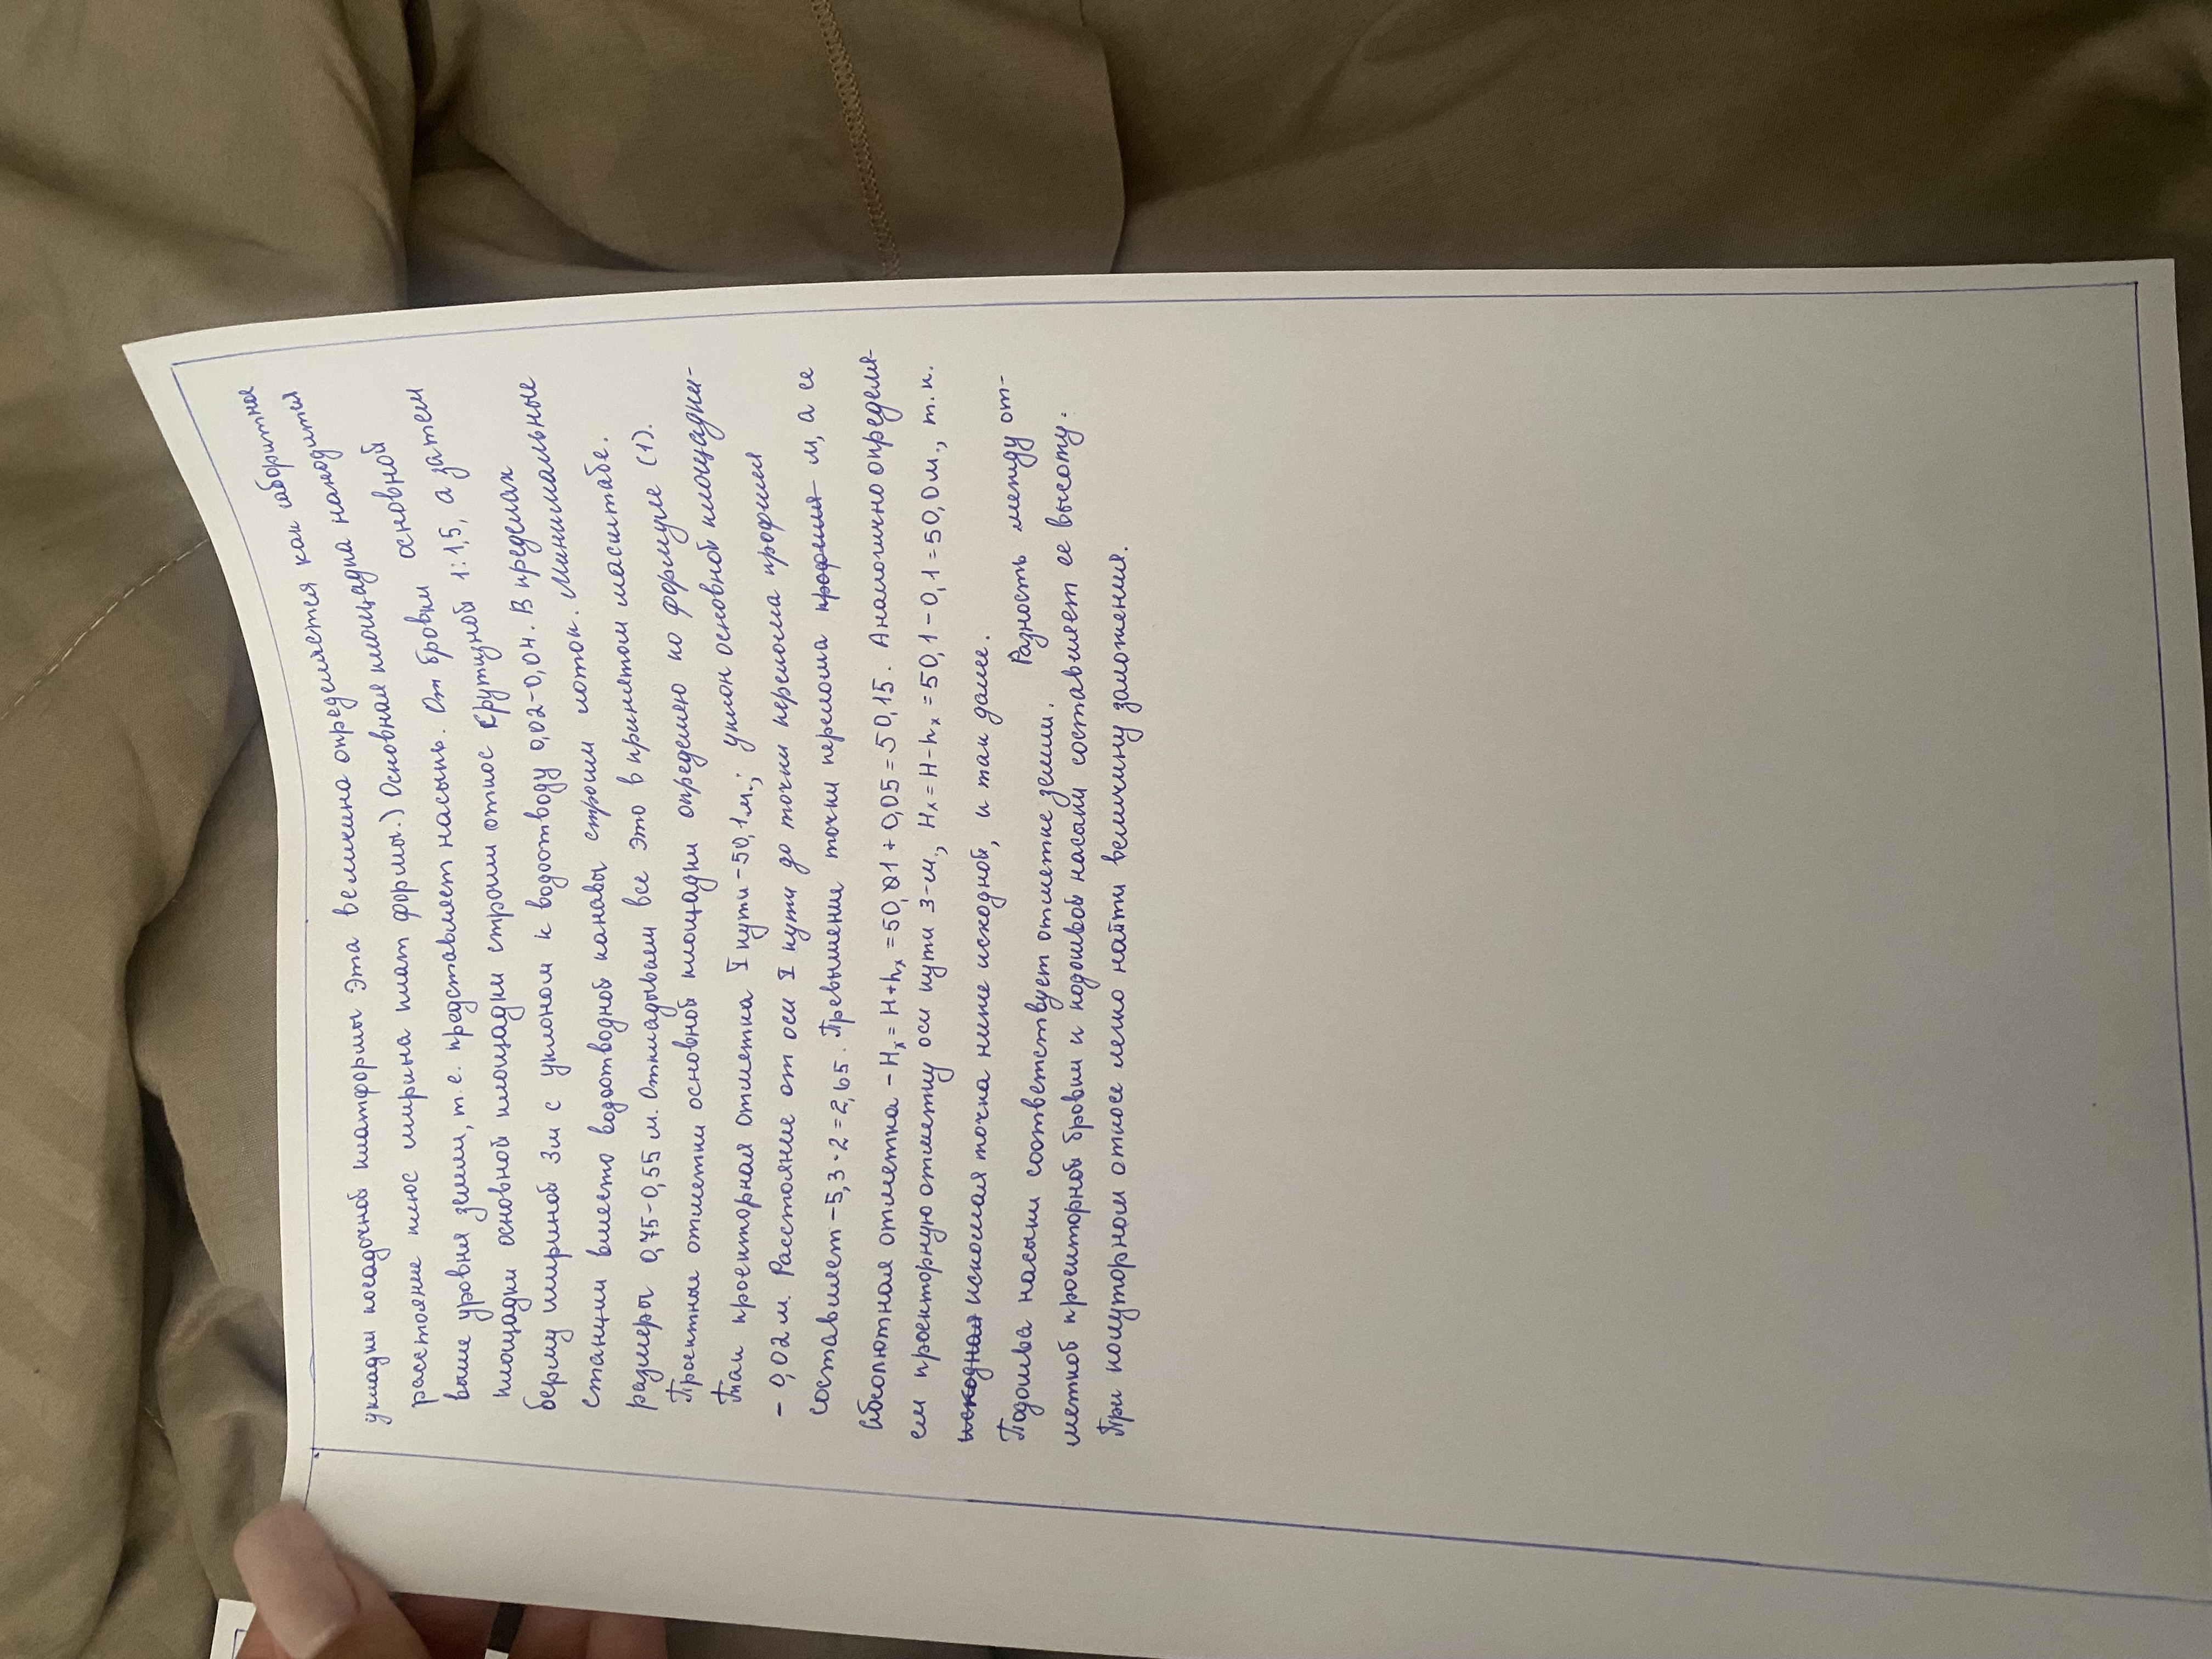 укладки посадочной платформы Эта величина определяется как габаритное
расстояние плюс ширина плат формы.) Основная площадка находится
выше уровня земли, т.е. представляет насыпь. От бровки основной
площадки основной площадки строим откос крутизной 1:1,5, а затем
берму шириной 3м с уклоном к водоотводу 0,02-0,04. В пределах
станции вместо водоотводной канавы строим лоток. Минимальные
размеры 0,75-0,55 м. Откладываем все это в принятом масштабе.
Проектные отметки основной площадки определею по формуле (1).
Так проекторная отметка I пути-50,1м.; уклон основной площадки-
- 0,02 м. Расстояние от оси I пути до точки перелома профиля
составляет -5,3·2=2,65. Превышение точки перелома профиля м, а ее
абсолютная отметка - Hₓ= H+hₓ = 50,01 + 0,05=50,15. Аналогично определя-
ем проекторную отметку оси пути 3-м., Hₓ= H-hₓ = 50,1-0,1=50,0м., т.к.
исходная искомая точка ниже исходной, и так далее.
Подошва насыпи соответствует отметке земли. Разность между от-
меткой проекторной бровки и подошвой насыпи составляет ее высоту.
При полуторном откосе легко найти величину заложения.